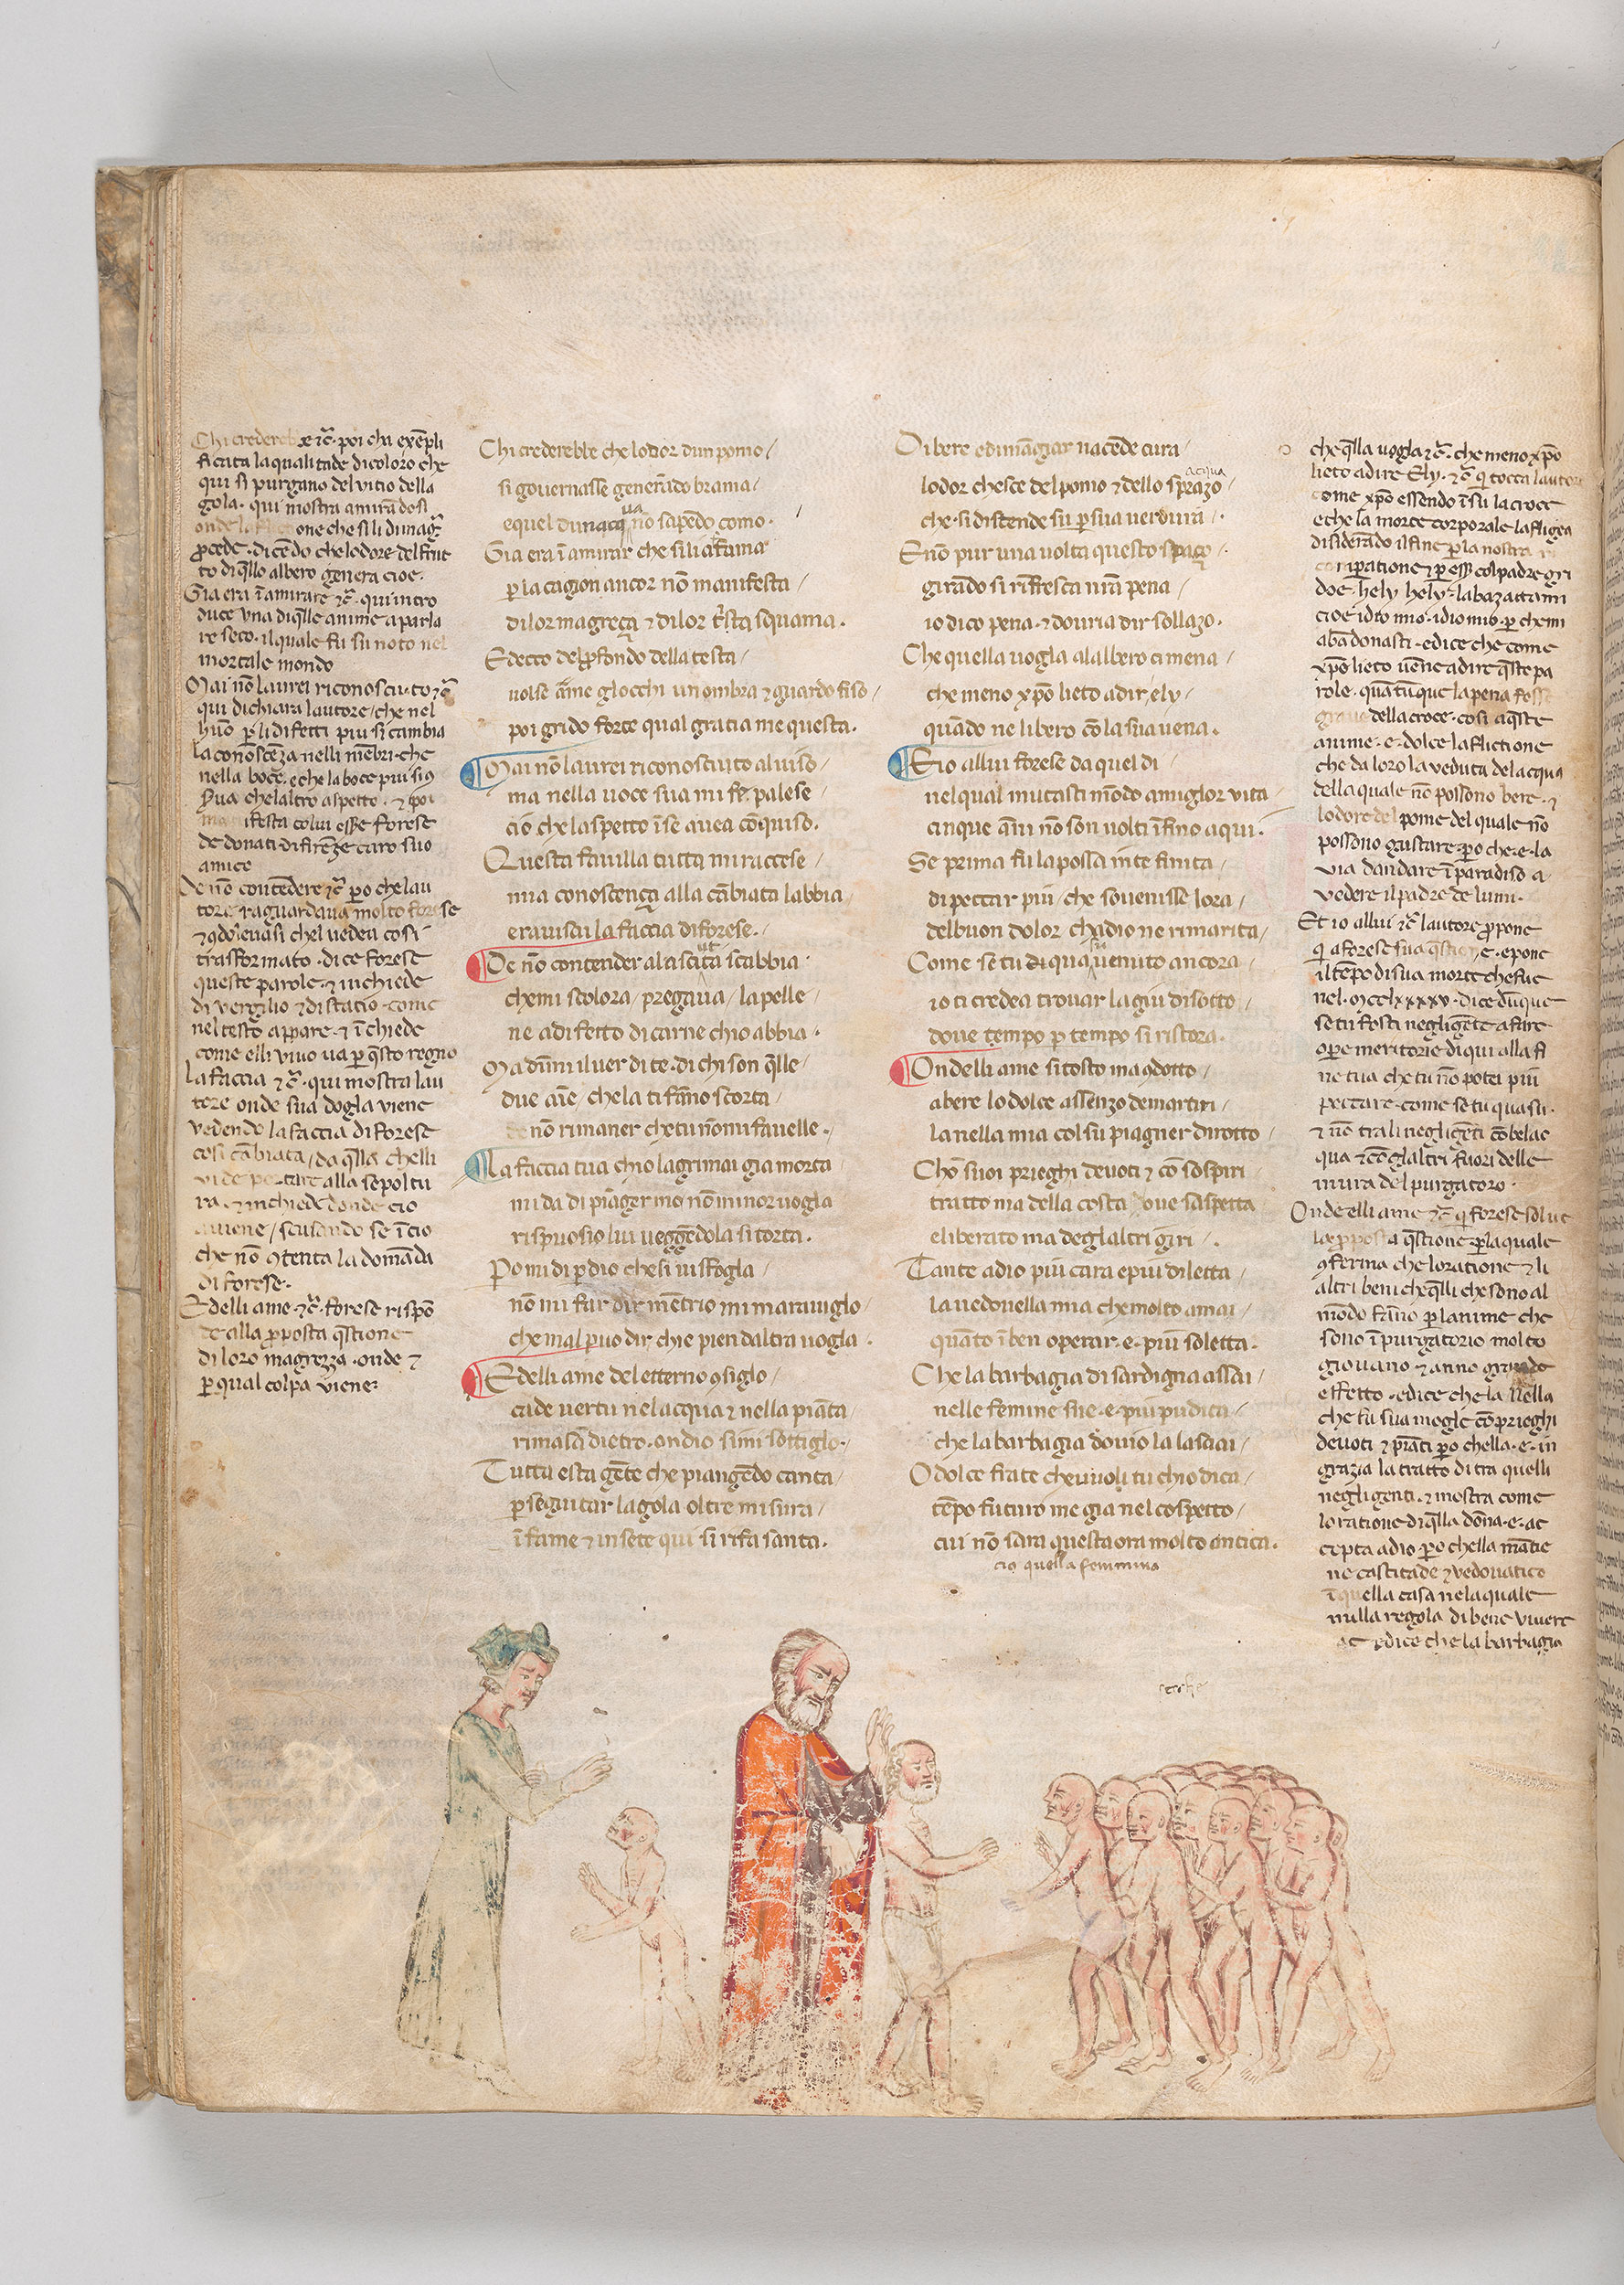 Chi crederebbe ⁊c̄· poi cha exēpli
ficata la qualitade di coloro che
qui si purgano del vitio della
gola· qui mostra amirādosi
one che sili dimagr̄
ꝓcede· dicēdo che lodore del frut
to di q̄llo albero genera cioe·
Gia era ī amirare ⁊c̄· qui intro
duce una diq̄lle anime a parla
re seco· il quale fu su noto nel
mortale mondo
Mai nō laurei riconosciuto ⁊c̄
qui dichiara lautore/ che nel
huō ꝑ li difetti piu si cambia
la conoscēza nelli mēbri· che
nella boce· e che la boce piu si 9
ṣua chel altro aspetto· ⁊ poi
ifesta colui esse forese
de donati di firēze caro suo
amico
De nō contēdere ⁊c̄ ꝑo che lau
tore raguardava molto forese
⁊ 9doleuasi chel vedea cosi
trasformato· dice forese
queste parole· ⁊ inchiede
di vergilio ⁊ di statio· come
nel testo appare· ⁊ ī chiede
come elli vivo va ꝑ q̄sto regno
La faccia ⁊c̄· qui mostra lau
tore onde sua dogla viene
vedendo la faccia di forese
cosi cābiata/ da q̄lla chelli
vide portare alla sepoltu
ra· ⁊ inchiede donde cio
aviene/ scusando se ī cio
che nō 9tenta la domāda
di forese·
Edelli ame· ⁊c̄· forese rispō
de alla ꝓposta q̄stione
di loro magrezza· onde ⁊
ꝑ qual colpa viene:
Chi crederebbe che lodor dun pomo/
si gouernasse generādo brama/
equel dunacqua nō sapēdo como·
Gia era ī amirar che sili afama
ꝑ la cagion ancor nō manifesta/
di lor magreça ⁊ di lor t̄sta squama·
Edecco del ꝓfondo della testa/
uolse a me glocchi un ombra ⁊ guardo fiso/
poi grido forte qual gratia me questa·
Mai nō laurei riconosciuto al uiso/
ma nella uoce sua mi fe palese/
cio che laspetto ī se auea cōquiso·
Questa fauilla tutta mi raccese/
mia conoscença alla cābiata labbia/
e rauisai la faccia di forese·
De nō contender al asciuta scabbia·
che mi scolora/ pregaua/ la pelle/
ne a difetto di carne chio abbia·
Ma dimmi il uer di te· di chi son q̄lle/
due aīe/ che la ti fāno scorta/
nō rimaner che tu nō mi fauelle·
La faccia tua chio lagrimai gia morta
mi da di piāger mo nō minor uogla
rispuosio lui ueggēdola si torta·
Po mi di ꝑ dio che si ui sfogla/
nō mi far dir mētrio mi marauiglo/
che mal puo dir chi e pien daltra uogla·
Edelli ame del etterno 9siglo/
cade uertu nel acqua ⁊ nella piāta/
rimasa dietro· ondio si mi sottiglo·
Tutta esta gēte che piangēdo canta/
ꝑ seguitar la gola oltre misura/
ī fame ⁊ in sete qui si rifa santa·
Di bere e di māgiar nacēde cura/
acqua
lodor chesce del pomo ⁊ dello sprazo/
che si distende su ꝑ sua uerdura/·
E nō pur una uolta questo spaço/·
girādo si rīfresca nr̄a pena/
io dico pena· ⁊ douria dir sollazo·
Che quella uogla al albero ci mena/
che meno xp̄o lieto a dir/ ely/
quādo ne libero cō la sua uena·
Et io allui forese da quel di/
nel qual mutasti mōdo a miglor vita
cinque āni nō son uolti īfino a qui·
Se prima fu la possa in te finita/
di peccar piu/ che souenisse lora/
del buon dolor ch a dio ne rimarita/
Come se tu di qua su uenuto ancora/
io ti credea trouar la giu di sotto/
doue tempo ꝑ tempo si ristora·
Ond elli ame si tosto ma 9dotto/
a bere lo dolce assenzo de martiri/
la nella mia col su piagner dirotto/
Chō suoi prieghi deuoti ⁊ cō sospiri/
tratto ma della costa doue saspetta
e liberato ma degl altri giri/·
Tante a dio piu cara e piu diletta/
la uedouella mia che molto amai/
quāto ī ben operar· e· piu soletta·
Che la barbagia di sardigna assai/
nelle femine sue· e· piu pudica/
che la barbagia dou io la lasciai/
O dolce frate che vuoli tu chio dica/
tēpo futuro me gia nel cospetto/
cui nō sara questa ora molto antica·
cio quella femmina
che q̄lla uogla ⁊c̄· che meno xp̄o
lieto a dire Ely· ⁊c̄ q̄ tocca lautore
come xp̄o essendo ī su la croce
e che la morte corporale la fligea
disiderādo il fine ꝑ la nostra
ꝑatione ⁊ ꝑ esse col padre gri
doe· hely hely· labazattani
cioe idio mio· idio mio· ꝑ che mi
abādonasti· edice che come
xp̄o lieto uēne a dire q̄ste pa
role· quātūque la pena fosse
graue della croce· cosi a q̄ste
anime· e· dolce la flictione
che da loro la veduta del acqua
della quale nō possono bere· ⁊
lodore del pome del quale nō
possono gustare· ꝑo che· e· la
via dandare ī paradiso a
vedere il padre de lumi·
Et io allui ⁊c̄ lautore ꝓpone
q̄ a forese sua q̄stione· e pone
il tēpo di sua morte che fue
nel· mcclxxxxv· dice dūque
se tu fosti negligēte a fare
oꝑe meritorie di qui alla fi
ne tua che tu nō potei piu
peccare· come se tu qua su·
⁊ nō tra li negligēti cō belac
qua ⁊ cō gl altri fuori delle
mura del purgatoro·
Onde elli ame ⁊c̄ q̄ forese solue
la ꝓposta q̄stione· ꝑ la quale
9ferma che loratione ⁊ li
altri beni che q̄lli che sono al
mōdo fāno ꝑ lanime che
sono ī purgatorio molto
giovano ⁊ anno grāde
effetto· e dice che la Nella
che fu sua mogle cō prieghi
devoti ⁊ piāti ꝑo chella· e· in
grazia la tratto di tra quelli
negligenti· ⁊ mostra come
loratione di q̄lla dōna· e· ac
cepta a dio· ꝑo chella mātie
ne castitade ⁊ vedouatico
ī quella casa nela quale
nulla regola di bene vivere
ac e dice che la barbagia